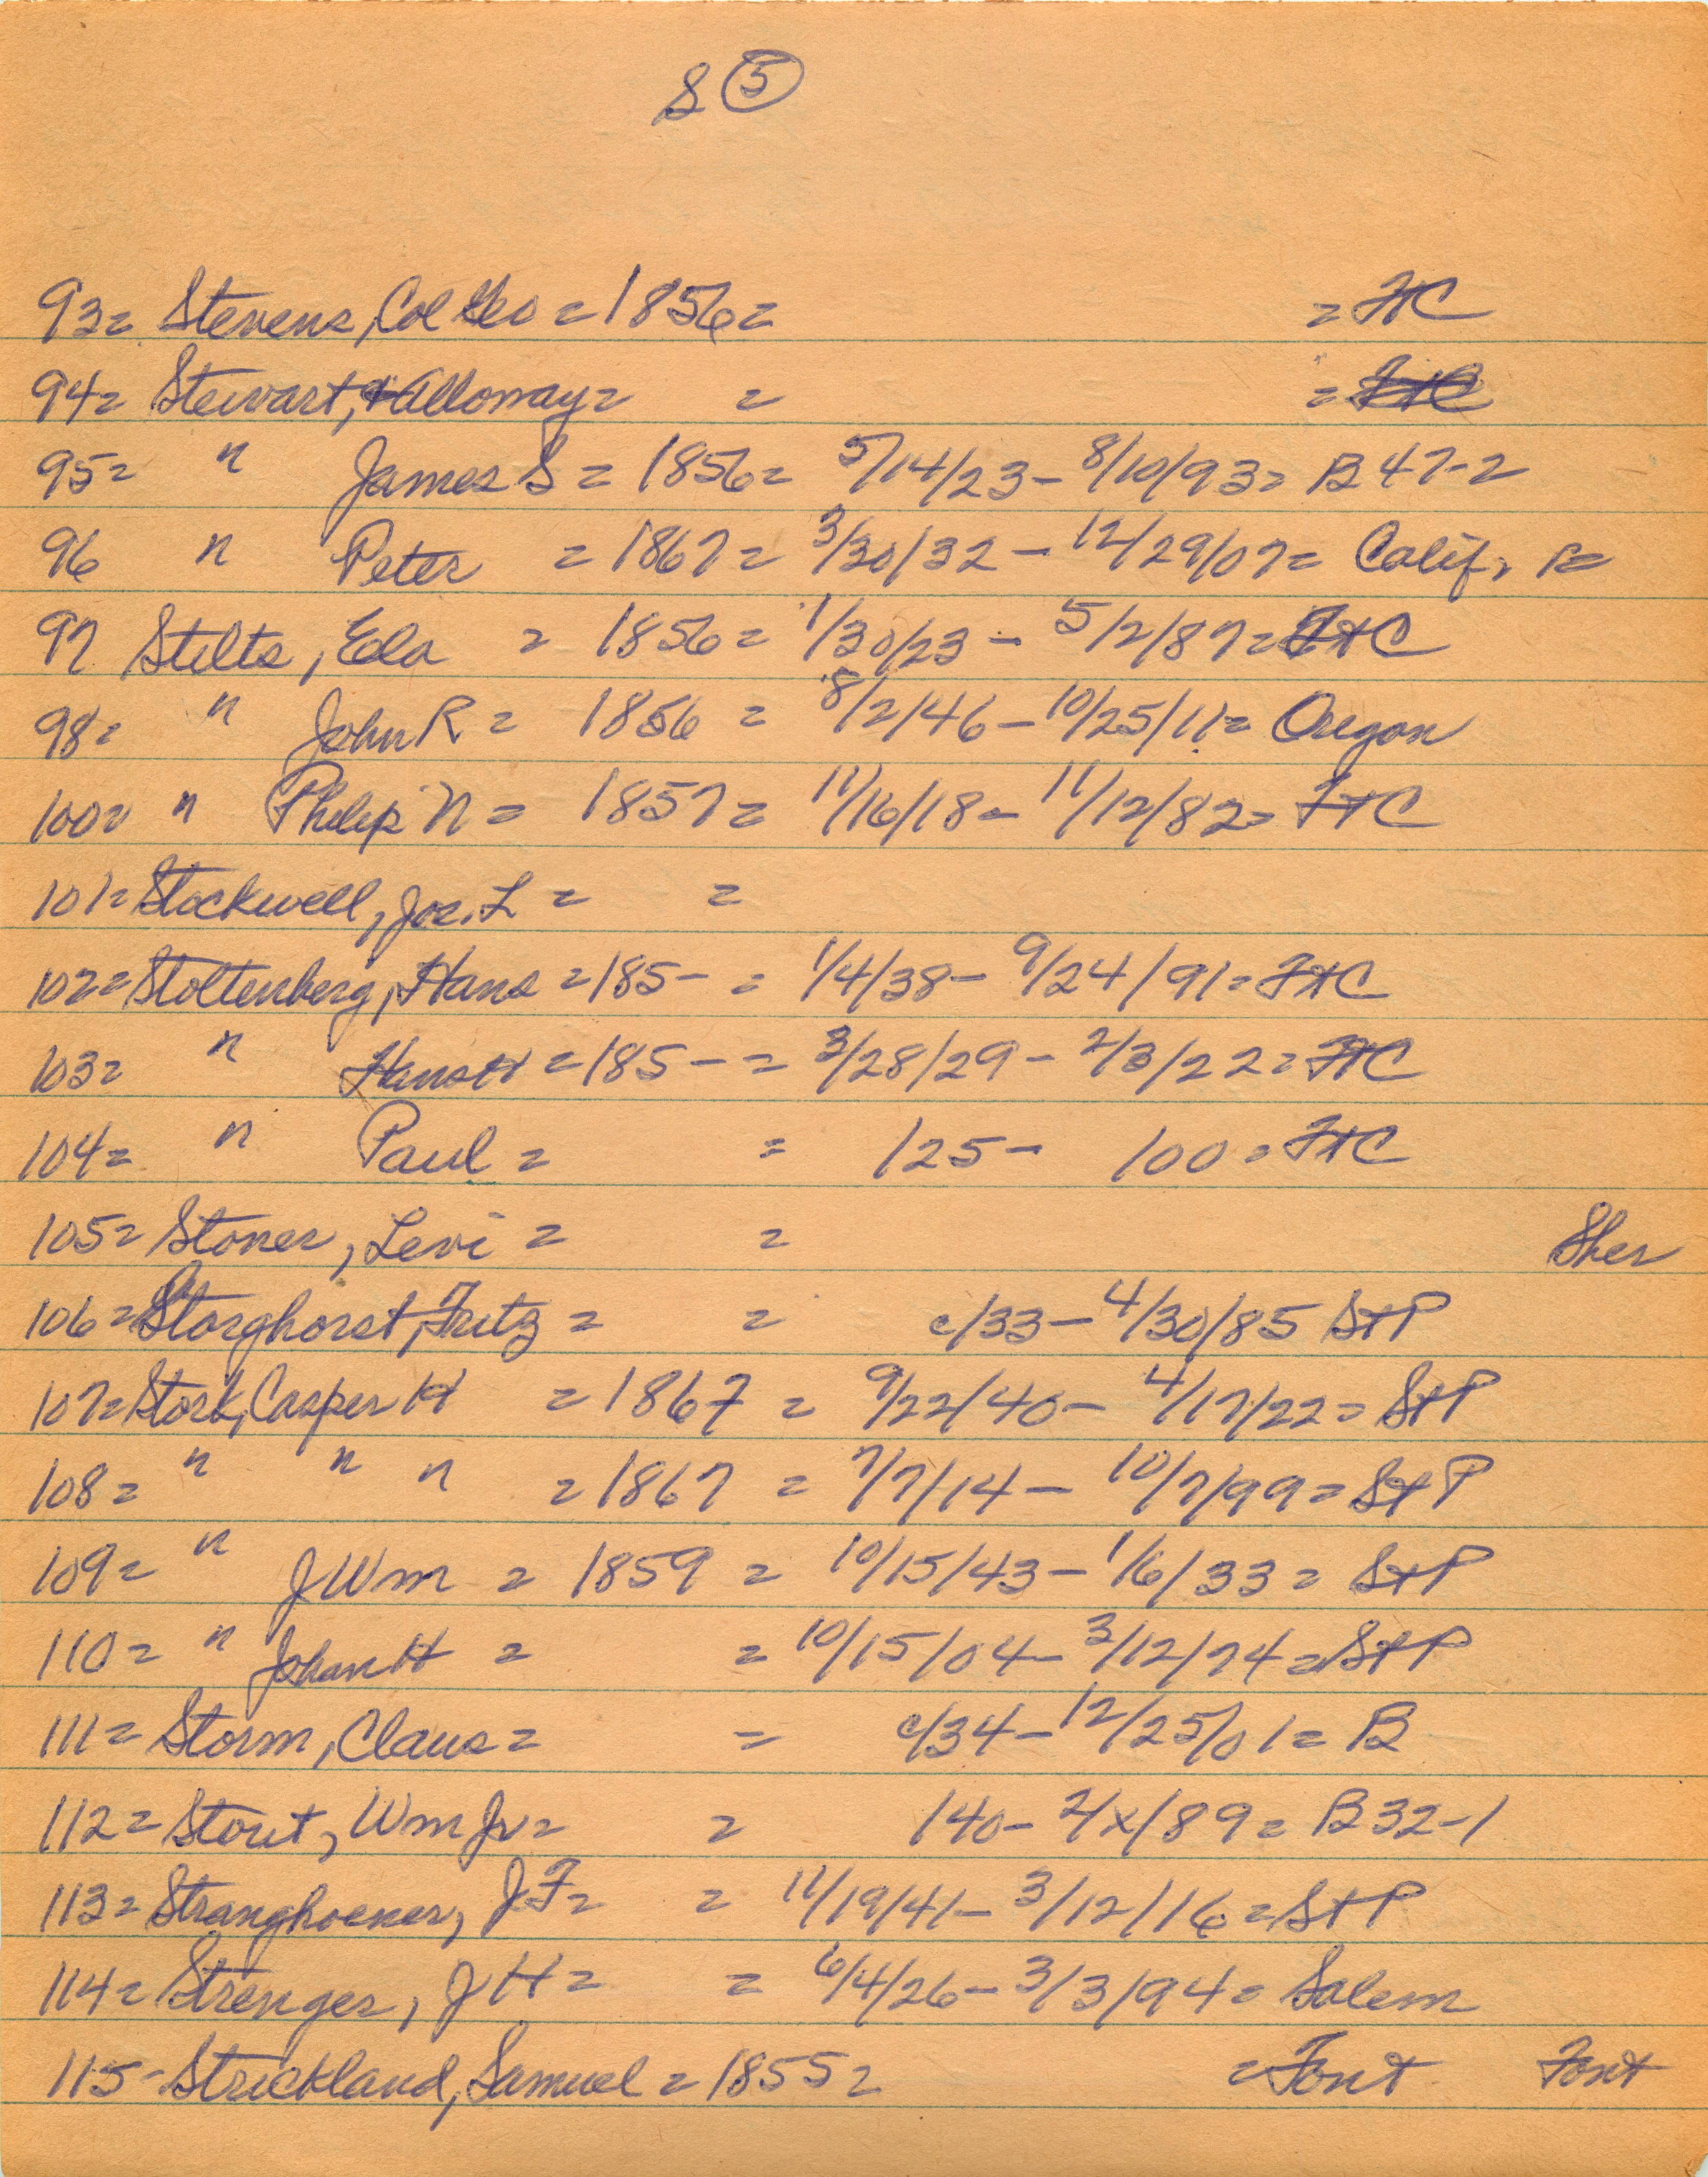 S 5
93= Stevens, Col Geo = 1856 = = FtC
94= Stewart, Alloway = = =
95= " James S = 1856 = 5/14/23 - 8/10/93 = B 47-2
96 " Peter = 1867 = 3/30/32 - 12/29/07 = Calif,
97 Stilts, Ela = 1856 = 1/30/23 - 5/2/87 = FtC
98= " John R = 1856 = 8/2/46 - 10/25/11 = Oregon
100= " Philip N = 1857 = 11/16/18 - 11/12/82 = FtC
101= Stockwell, Jos. L = =
102= Stoltenberg, Hans = 185- = 1/4/38 - 9/24/91 = FtC
103= " Hans H = 185- = 3/28/29 - 2/3/22 = FtC
104= " Paul = = /25 - /00 = FtC
105= Stoner, Levi = = Sher
106= Storghorst, Fritz = = c/33 - 4/30/85 StP
107= Stork, Casper H = 1867 = 9/22/40 - 4/17/22 = StP
108= " " " = 1867 = 7/7/14 - 10/7/99 = StP
109= " J Wm = 1859 = 10/15/43 - 1/6/33 = StP
110= " Johan H = = 10/15/04 - 3/12/74 = StP
111= Storm, Claus = = c/34 - 12/25/01 = B
112= Stout, Wm Jr = = /40 - 2/x/89 = B32-1
113= Stranghoener, J F = = 11/19/41 - 3/12/16 = StP
114= Strenger, J H = = 6/4/26 - 3/3/94 = Salem
115- Strickland, Samuel = 1855 = = Font Font